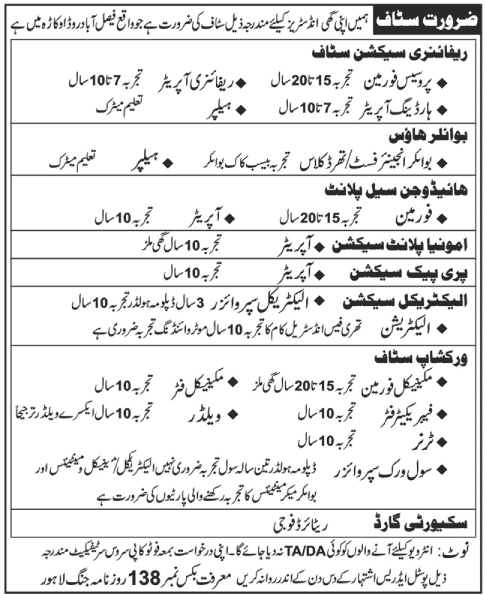 ضرورت سٹاف
ہمیں اپنی گھی انڈسٹریز کیلئے مندرجہ ذیل سٹاف کی ضرورت ہے جو واقع فیصل آباد روڈ اوکاڑہ میں ہے
ریفائنری سیکشن سٹاف
◆ پروسیس فورمین تجربہ 15 تا 20 سال ◆ ریفائنری آپریٹر تجربہ 7 تا 10 سال
◆ ہارڈیننگ آپریٹر تجربہ 7 تا 10 سال ◆ ہیلپر تعلیم میٹرک
بوائلر ہاؤس
◆ بوائلر انجینئر فسٹ/تھرڈ کلاس تجربہ بیب کاک بوائلر ◆ ہیلپر تعلیم میٹرک
ہائیڈوجن سیل پلانٹ
◆ فورمین تجربہ 15 تا 20 سال ◆ آپریٹر تجربہ 10 سال
امونیا پلانٹ سیکشن ◆ آپریٹر تجربہ 10 سال گھی ملز
پری پیک سیکشن ◆ آپریٹر تجربہ 10 سال
الیکٹریکل سیکشن ◆ الیکٹریکل سپروائزر 3 سال ڈپلومہ ہولڈر تجربہ 10 سال
◆ الیکٹریشن تھری فیس انڈسٹریل کام کا تجربہ 10 سال موٹر وائنڈنگ تجربہ ضروری ہے
ورکشاپ سٹاف
◆ مکینیکل فورمین تجربہ 15 تا 20 سال گھی ملز ◆ مکینیکل فٹر تجربہ 10 سال
◆ فیبریکیٹر فٹر تجربہ 10 سال ◆ ویلڈر تجربہ 10 سال ایکسرے ویلڈر ترجیحاً
◆ ٹرنر تجربہ 10 سال
◆ سول ورک سپروائزر ڈپلومہ ہولڈر تین سالہ سول تجربہ ضروری نہیں الیکٹریکل/مینیکل و مینٹیننس اور
بوائلر میکر مینٹیننس کا تجربہ رکھنے والی پارٹیوں کی ضرورت ہے
سکیورٹی گارڈ ریٹائرڈ فوجی
نوٹ: انٹرویو کیلئے آنے والوں کو کوئی TA/DA نہ دیا جائے گا۔ اپنی درخواست بمعہ فوٹو کاپی سروس سرٹیفکیٹ مندرجہ
ذیل پوسٹل ایڈریس اشتہار کے دس دن کے اندر روانہ کریں معرفت بکس نمبر 138 روزنامہ جنگ لاہور